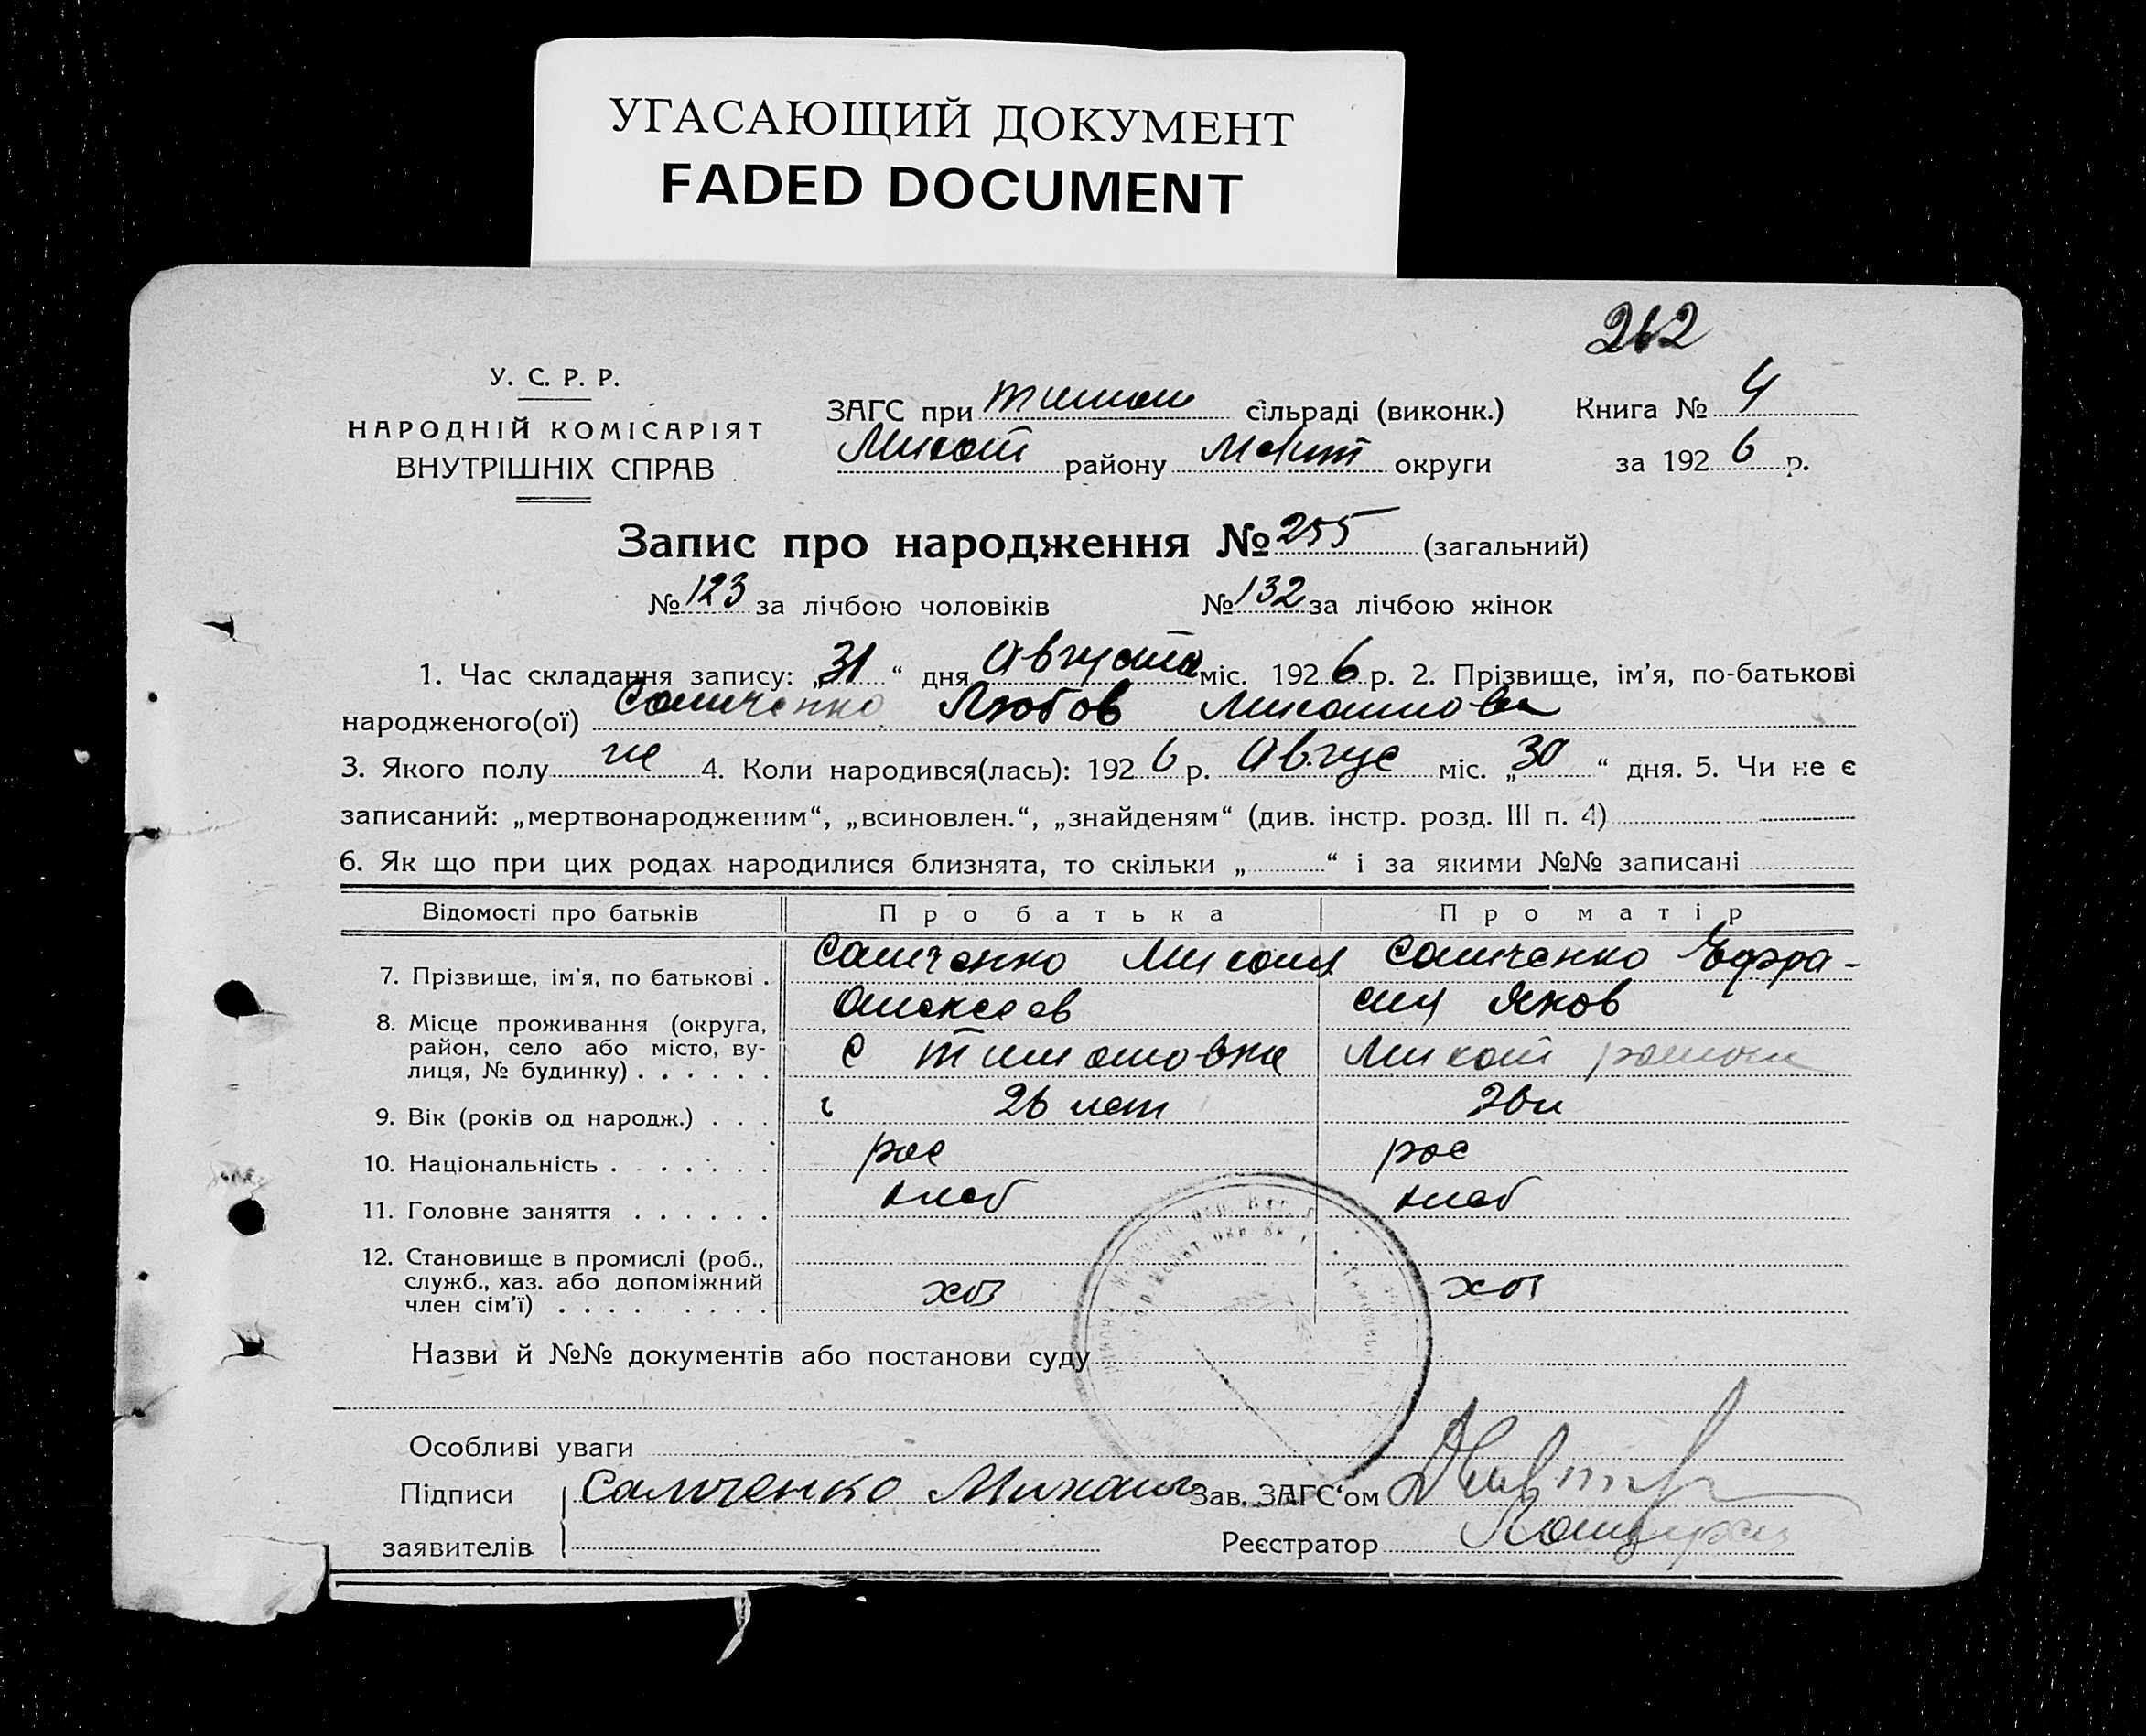 УГАСАЮЩИЙ ДОКУМЕНТ
FADED DOCUMENT
262
У. С. Р. Р.
НАРОДНІЙ КОМІСАРІЯТ
ВНУТРІШНІХ СПРАВ
ЗАГС при Тимош сільраді (виконк.)
Михай району Меліт округи
Книга № 4
за 1926 р.
Запис про народження № 255 (загальний)
№ 123 за лічбою чоловіків № 132 за лічбою жінок
1. Час складання запису: „31“ дня Августа міс. 1926 р. 2. Прізвище, ім'я, по-батькові
народженого(ої) Самченко Любов Михайлова
3. Якого полу же 4. Коли народився(лась): 1926 р. Авгус міс. „30“ дня. 5. Чи не є
записаний: „мертвонародженим“, „всиновлен.“, „знайденям“ (див. інстр. розд. III п. 4)
6. Як що при цих родах народилися близнята, то скільки „ “ і за якими №№ записані
Відомості про батьків Про батька Про матір
7. Прізвище, ім'я, по батькові . Самченко Михаил Самченко Ефра-
Алексеев сия Яков
8. Місце проживання (округа,
район, село або місто, ву-
лиця, № будинку) . . . . . . С Тимошовка Михай района
9. Вік (років од народж.) . . . 26 лет 26 л
10. Національність . . . . . . . рос рос
11. Головне заняття . . . . . . хлеб хлеб
12. Становище в промислі (роб.,
служб., хаз. або допоміжний
член сім'ї) . . . . . . . . . хоз хоз
Назви й №№ документів або постанови суду
Особливі уваги
Підписи Самченко Михаил Зав. ЗАГС'ом
заявителів Реєстратор